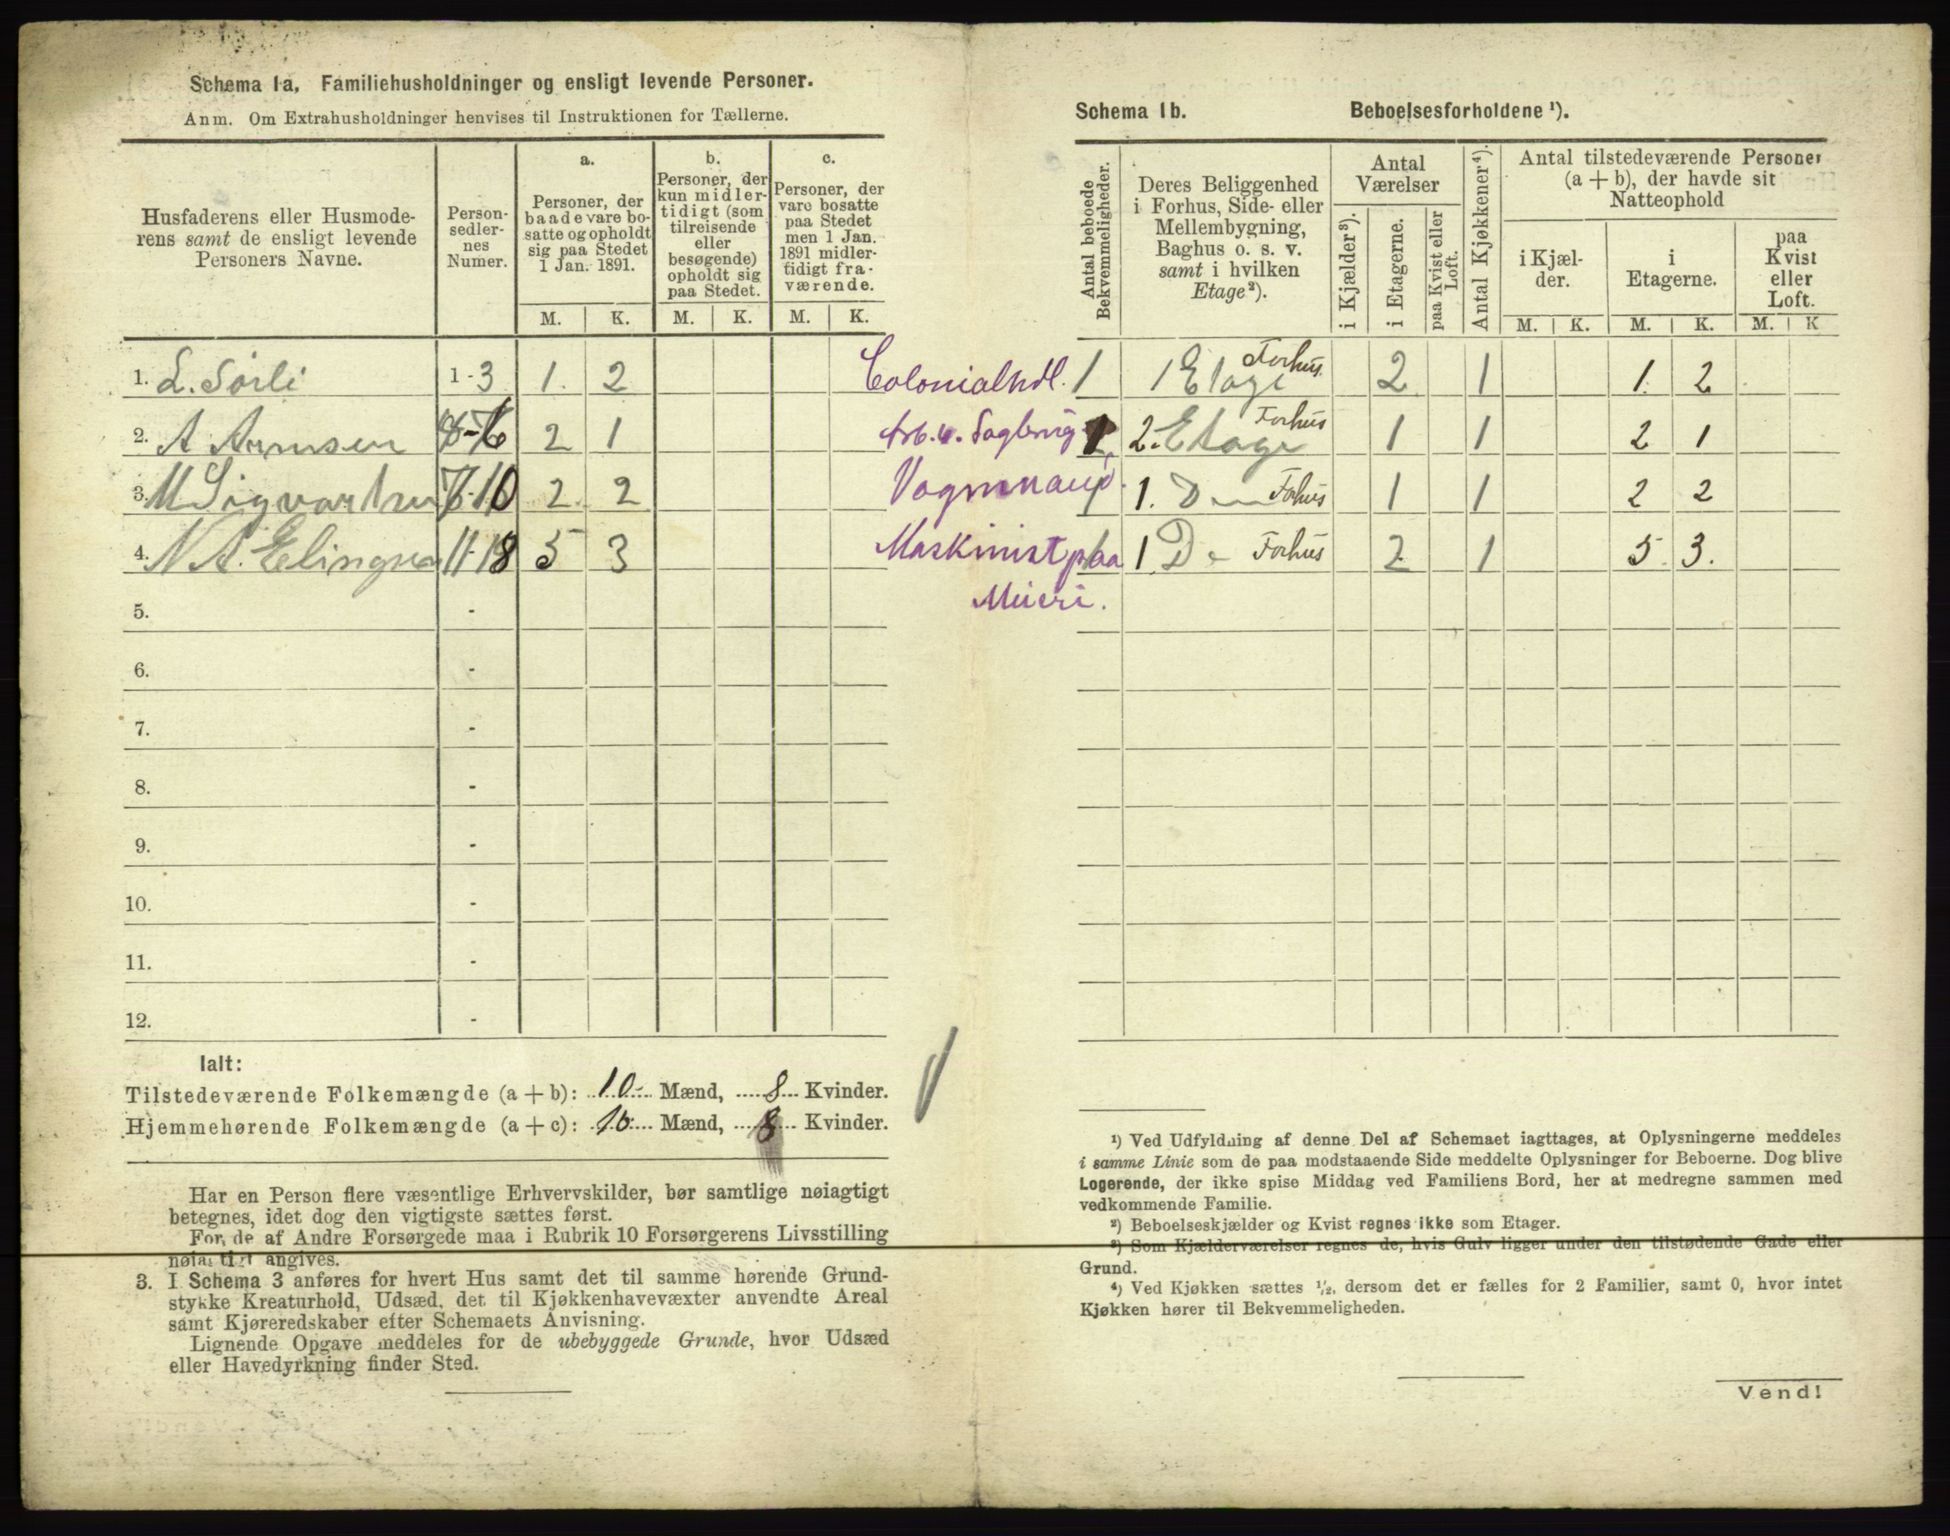 Schema 1a. Familiehusholdninger og ensligt levende Personer.
Anm. Om Extrahusholdninger henvises til Instruktionen for Tællerne.
Husfaderens eller Husmode-
rens samt de ensligt levende
Personers Navne.
Person-
sedler-
nes
Numer.
a.
Personer, der
baade vare bo-
satte og opholdt
sig paa Stedet
1 Jan. 1891.
b.
Personer, der
kun midler-
tidigt (som
tilreisende
eller
besøgende)
opholdt sig
paa Stedet.
c.
Personer, der
vare bosatte
paa Stedet
men 1 Jan.
1891 midler-
tidigt fra-
værende.
M. K. M. K. M. K.
1. L. Sørli 1-3 1. 2
2. A Arnsen 2 1
3. M Sigvartsen 7-10 2. 2
4. N A. Elingsen 11-18 5 3
5. -
6. -
7. -
8. -
9. -
10. -
11. -
12. -
Ialt:
Tilstedeværende Folkemængde (a + b): 10 Mænd, 8 Kvinder.
Hjemmehørende Folkemængde (a + c): 10 Mænd, 8 Kvinder.
Har en Person flere væsentlige Erhvervskilder, bør samtlige nøiagtigt
betegnes, idet dog den vigtigste sættes først.
For de af Andre Forsørgede maa i Rubrik 10 Forsørgerens Livsstilling
nøiagtigt angives.
3. I Schema 3 anføres for hvert Hus samt det til samme hørende Grund-
stykke Kreaturhold, Udsæd, det til Kjøkkenhavevæxter anvendte Areal
samt Kjøreredskaber efter Schemaets Anvisning.
Lignende Opgave meddeles for de ubebyggede Grunde, hvor Udsæd
eller Havedyrkning finder Sted.
Schema 1b. Beboelsesforholdene ¹).
Antal beboede
Bekvemmeligheder.
Deres Beliggenhed
i Forhus, Side- eller
Mellembygning,
Baghus o. s. v.
samt i hvilken
Etage²).
Antal
Værelser
i Kjælder³).
i Etagerne.
paa Kvist eller
Loft.
Antal Kjøkkener⁴).
Antal tilstedeværende Personer
(a + b), der havde sit
Natteophold
i Kjæl-
der.
i
Etagerne.
paa
Kvist
eller
Loft.
M. K. M. K. M. K
Colonialhdl. 1 1 Etage Forhus 2 1 1. 2
Arb. v. Sagbrug 1 2. Etage Forhus 1 1 2 1
Vognmand. 1 1. Do Forhus 1 1 2 2
Maskinist paa 1 1 Do Forhus 2 1 5 3.
Mieri.
¹) Ved Udfyldning af denne Del af Schemaet iagttages, at Oplysningerne meddeles
i samme Linie som de paa modstaaende Side meddelte Oplysninger for Beboerne. Dog blive
Logerende, der ikke spise Middag ved Familiens Bord, her at medregne sammen med
vedkommende Familie.
²) Beboelseskjælder og Kvist regnes ikke som Etager.
³) Som Kjælderværelser regnes de, hvis Gulv ligger under den tilstødende Gade eller
Grund.
⁴) Ved Kjøkken sættes ½, dersom det er fælles for 2 Familier, samt 0, hvor intet
Kjøkken hører til Bekvemmeligheden.
Vend!